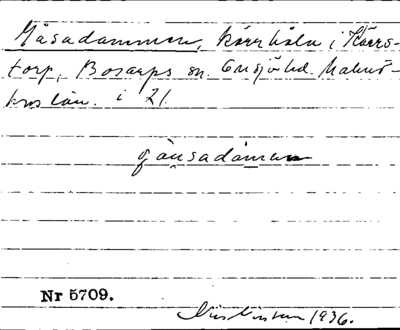 Gåsadammen, kärrhåla i Kärrs-
torp, Bosarps sn. Onsjö hd. Malmö-
hus län. i 21.
gåusadåmen
Nr 5709.
1936.